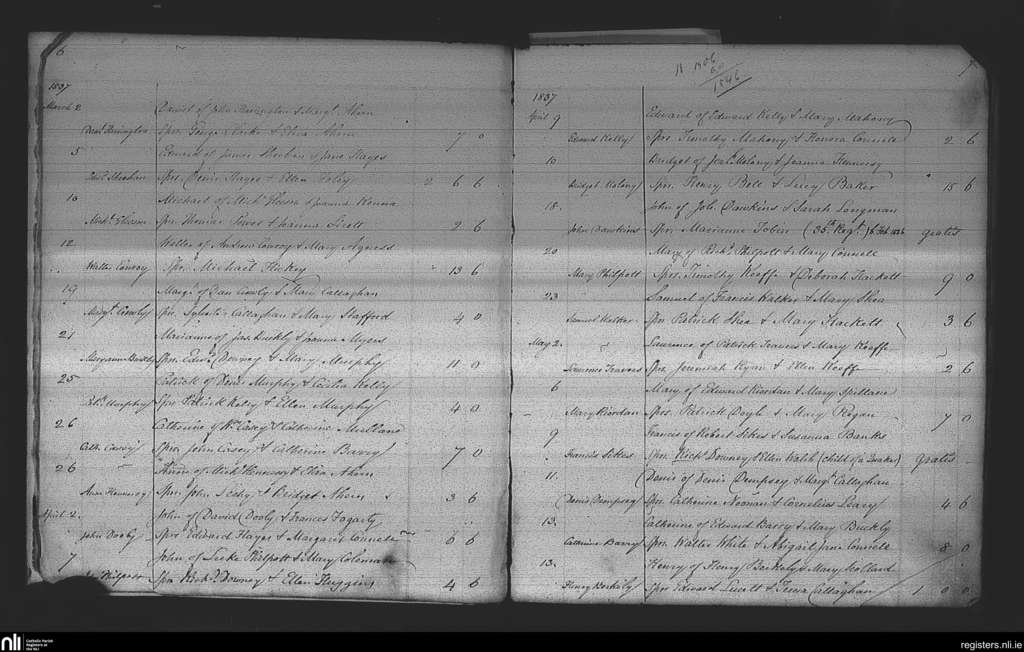 6
1837
March 2 Daniel of John Bennington & Marg.t Ahern
Dan.l Bennington Spr. George Clarke & Eliza Ahern 7 0
5 Edmund of James Sheehan & Jane Hayes
Sheehan Sprs. Denis Hayes & Ellen Foley 2 6 6
10 Michael of Mich.l & Joanna
Mich.l Spr. Thomas Power & Joanna Scott 2 6
12 Walter of Andrew Conroy & Mary Agness
Walter Conroy Spr. Michael Hickey 13 6
19 Marg.t of Dan Crowly & Mary Callaghan
Marg.t Crowly Sprs. Sylvest.r Callaghan & Mary Stafford 4 0
21 Marianne of Jas. Buckly & Joanna Myers
Maryanne Buckly Sprs. Edw.d Downey & Mary Murphy 11 0
25 Patrick of Denis Murphy & Cecilia Kelly
Murphy Sprs. Patrick Kelly & Ellen Murphy 4 0
26 Catherine of W.m Casey & Catherine Mullane
Cath. Casey Sprs. John Casey & Catherine Barry 7 0
26 Anne of Mich.l Hennessy & Eliza Ahern
Anne Hennessy Sprs. John Leehy & Bridget Ahern 3 6
April 2 John of David Dooly & Frances Fogarty
John Dooly Sprs. Edward Hayes & Margaret Connele 6 6
7 John of Luke Philpott & Mary Coleman
Philpott Sprs. Rich.d Downey & Ellen Huggins 4 6
7
1546
1837
April 9 Edward of Edward Kelly & Mary Mahony
Edward Kelly Sprs. Timothy Mahony & Honora Connele 2 6
10 Bridget of Molony & Joanna Flennesy
Bridget Molony Sprs. Henry Bell & Lucy Baker 15 6
18 John of Job Dawkins & Sarah Longman
John Dawkins Spr. Marianne Tobin (35th Regt.) gratis
20 Mary of Rich.d Philpott & Mary Connele
Mary Philpott Sprs. Timothy Keeffe & Deborah Hackett 9 0
23 Samuel of Francis Walker & Mary Shea
Samuel Walker Sprs. Patrick Shea & Mary Hackett 3 6
May 2 Laurence of Patrick Travers & Mary Keeffe
Laurence Travers Sprs. Jeremiah Ryan & Ellen Keeffe 2 6
6 Mary of Edward Riordan & Mary Spillane
Mary Riordan Sprs. Patrick Doyle & Mary Regan 7 0
9 Francis of Robert Sikes & Susanna Banks
Francis Sikes Sprs. Rich.d Downey & Ellen Walsh (child of a Quaker) gratis
11 Denis of Denis Dempsey & Marg.t Callaghan
Denis Dempsey Sprs. Catherine Noonan & Cornelius Leary 4 6
13 Catherine of Edward Barry & Mary Buckly
Catherine Barry Sprs. Walter White & Abigail Jane Connele 8 0
13 Henry of Henry Berkely & Mary Scotland
Henry Berkely Sprs. Edward Lucett & Teresa Callaghan 1 0 0
nli
Catholic Parish
Registers at
the NLI
registers.nli.ie